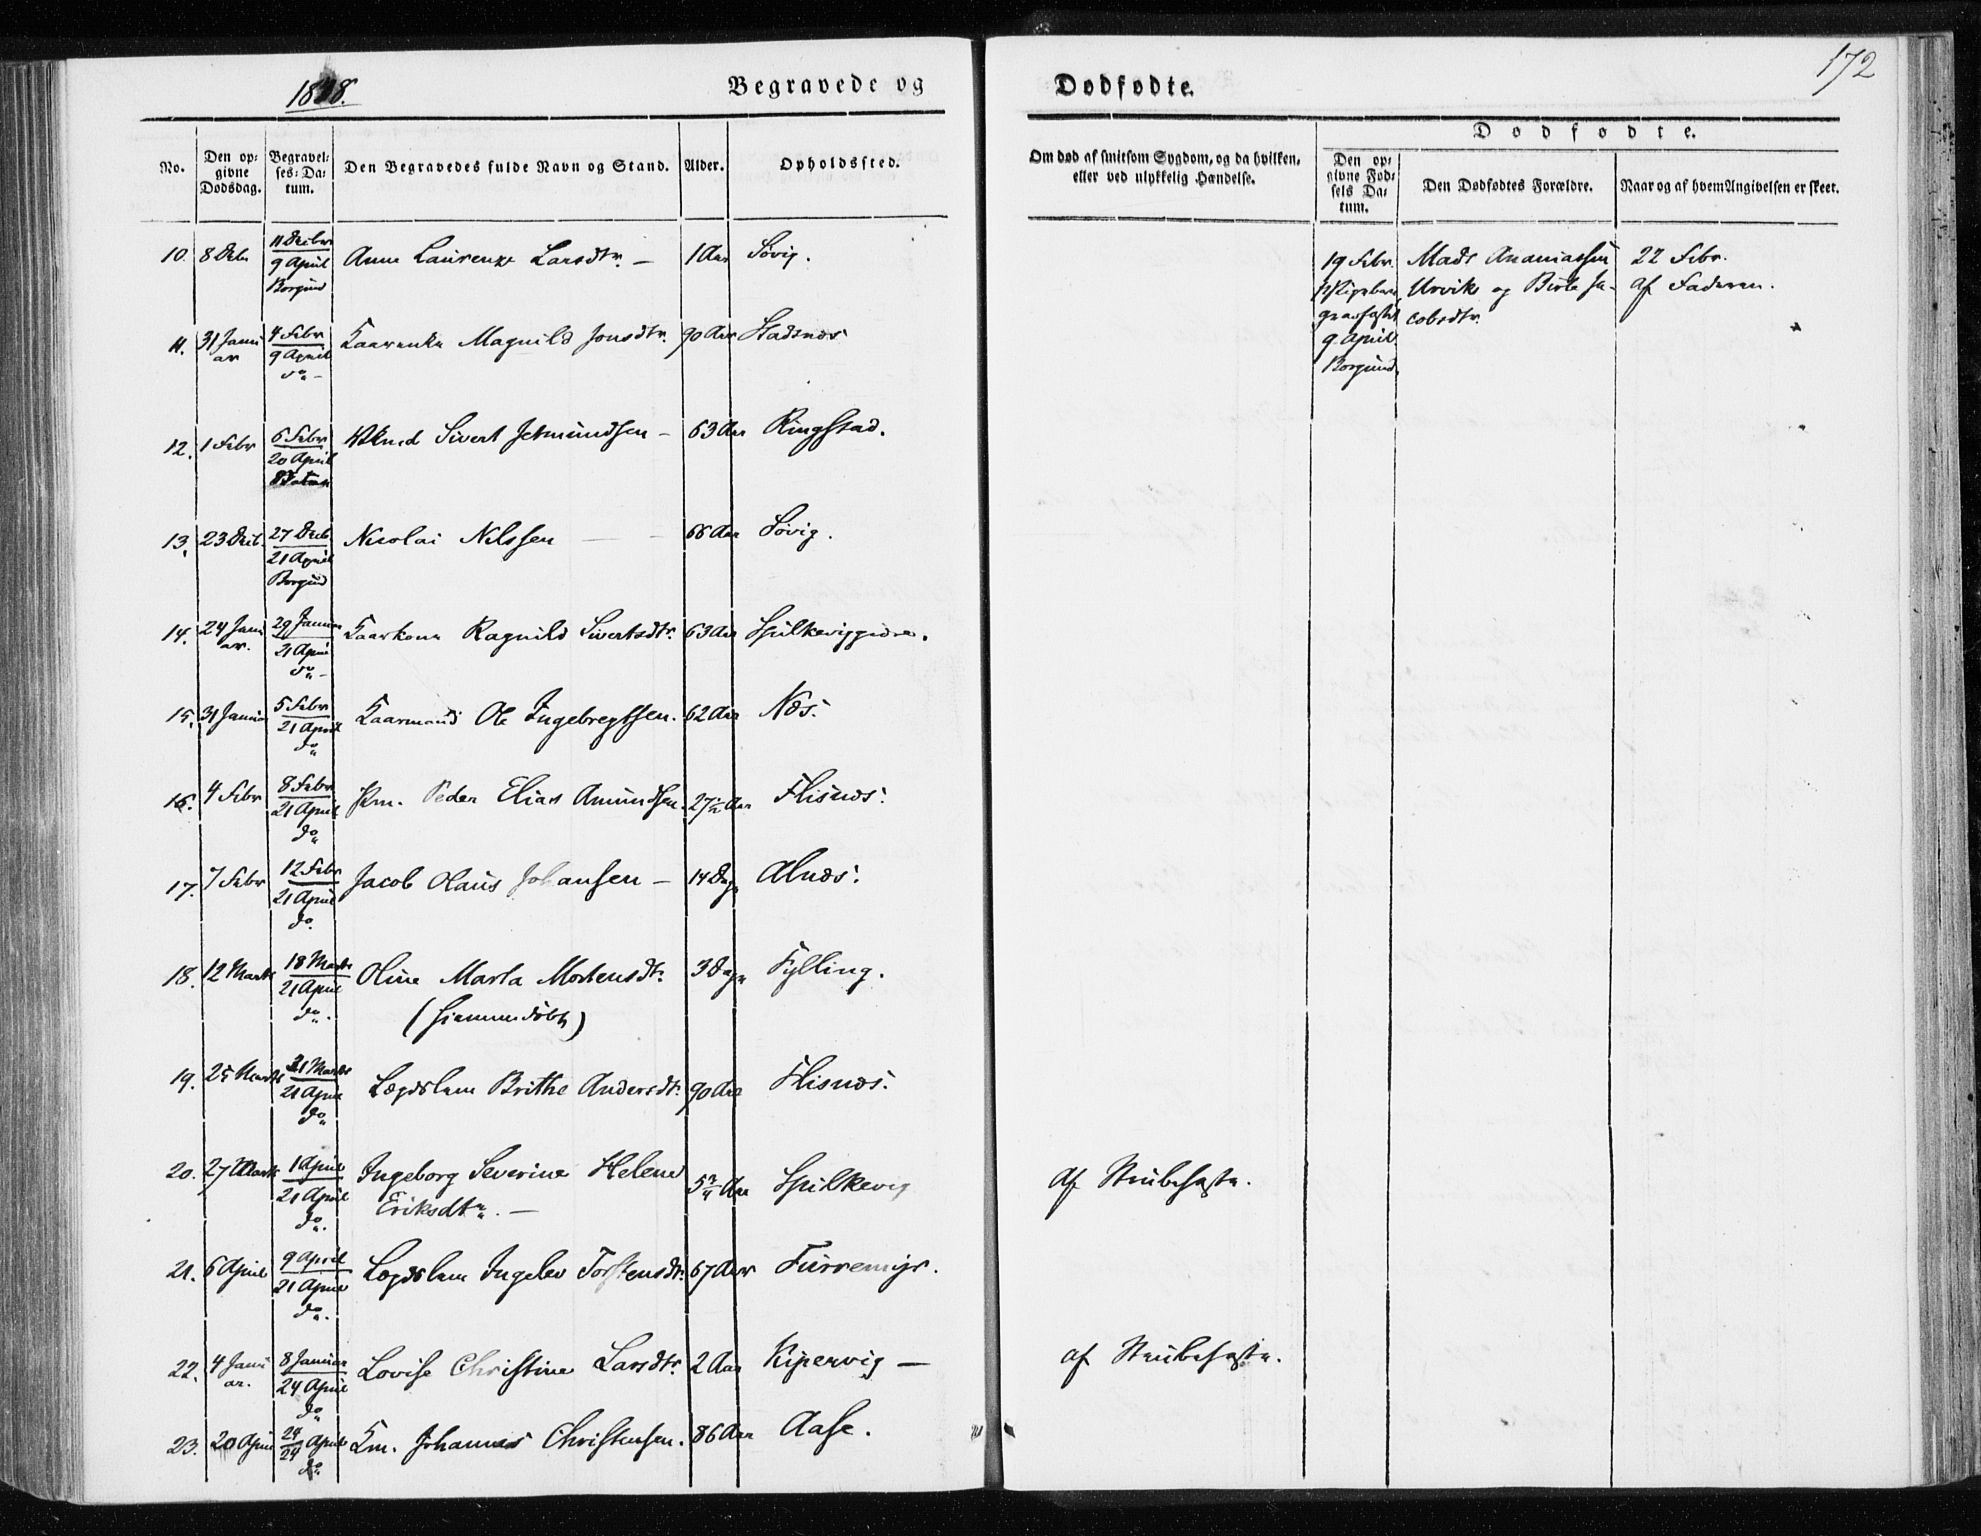 1848.
Begravede og
Dødfødte.
172
No.
Den op-
givne
Dødsdag.
Begravel-
ses-Da-
tum.
Den Begravedes fulde Navn og Stand.
Alder.
Opholdssted.
Om død af smitsom Sygdom, og da hvilken,
eller ved ulykkelig Hændelse.
Dødfødte.
Den op-
givne Fød-
sels Da-
tum.
Den Dødfødtes Forældre.
Naar og af hvem Angivelsen er skeet.
10. 8 Decbr 11 Decbr Anne Laurenze Larsdtr. — 1 Aar Søvig.
9 April
Borgund
19 Febr Mads Ananiassen 22 Febr.
Urvik og Birte Ja- af Faderen.
cobsdtr.
9 April
Borgund.
11. 31 Janu 4 Febr Magnild Jonsdtr. 90 Aar Stadsnæs
ar 9 April
do
12. 1 Febr 6 Febr Sivert Jetmundsen — 63 Aar Ringstad.
20 April
13. 23 Decb. 27 Decb Nicolai Nilssen — 66 Aar Søvig.
21 April
Borgund
14. 24 Janu 29 Januar Kaarkone Ragnild Sivertsdtr. 63 Aar
ar. 21 April
do
15. 31 Januar 5 Febr Kaarmand Ole Ingebregtsen. 62 Aar Næs.
21 April
do
16. 4 Febr 8 Febr Peder Elias Amundsen. 27 1/2 Aar Flisnæs.
21 April
do
17. 7 Febr 12 Febr Jacob Olaus Johansen — 14 Dage Alnæs.
21 April
do.
18. 12 Marts 18 Marts Oline Marta Mortensdtr. 3 Dage Fylling.
21 April
do. (hjemmedøbt)
19. 25 Marts 31 Marts Lægdslem Brithe Andersdtr. 90 Aar Flisnæs.
21 April
do
20. 27 Marts 1 April Ingeborg Severine Helene Aar Spilkevig
21 April Eriksdtr. —
do.
af Strubehoste.
21. 6 April 9 April Lægdslem Ingelev Torstensdtr. 67 Aar Furremyr.
21 April
do.
22. 4 Janu 8 Januar Lovise Christine Larsdtr. 2 Aar Kipervig —
ar. 24 April
do
af Strubehoste.
23. 20 April 24 April Km. Johannes Christensen. 86 Aar Aase.
24
do